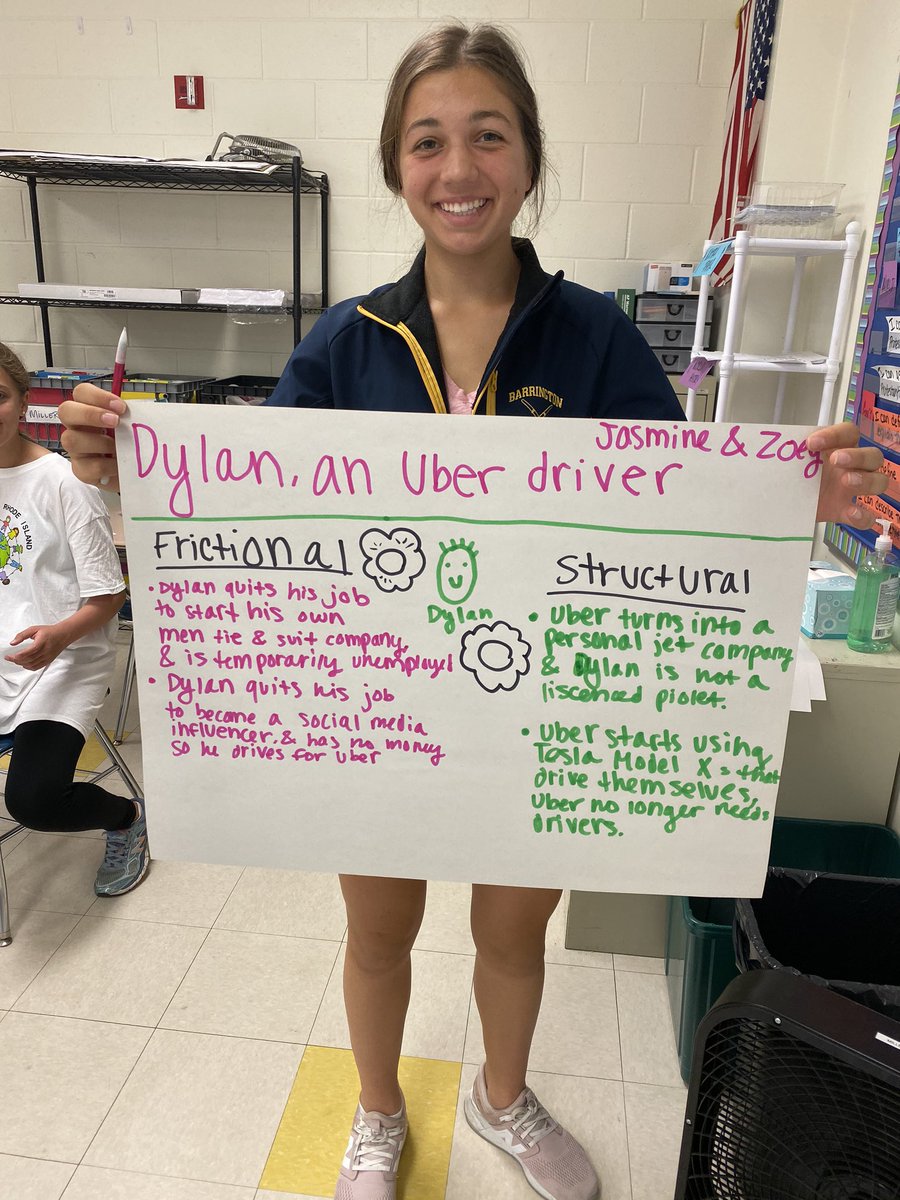 Jasmine & Zoey
Dylan, an Uber driver
Frictional
• Dylan quits his job
to start his own
men tie & suit company,
& is temporarily unemployed
• Dylan quits his job
to become a social media
influencer, & has no money
so he drives for Uber
Dylan
Structural
• Uber turns into a
personal jet company
& Dylan is not a
liscensed piolet.
• Uber starts using
Tesla Model X's that
drive themselves,
Uber no longer needs
drivers.
BARRINGTON
RHODE ISLAND
MILLER